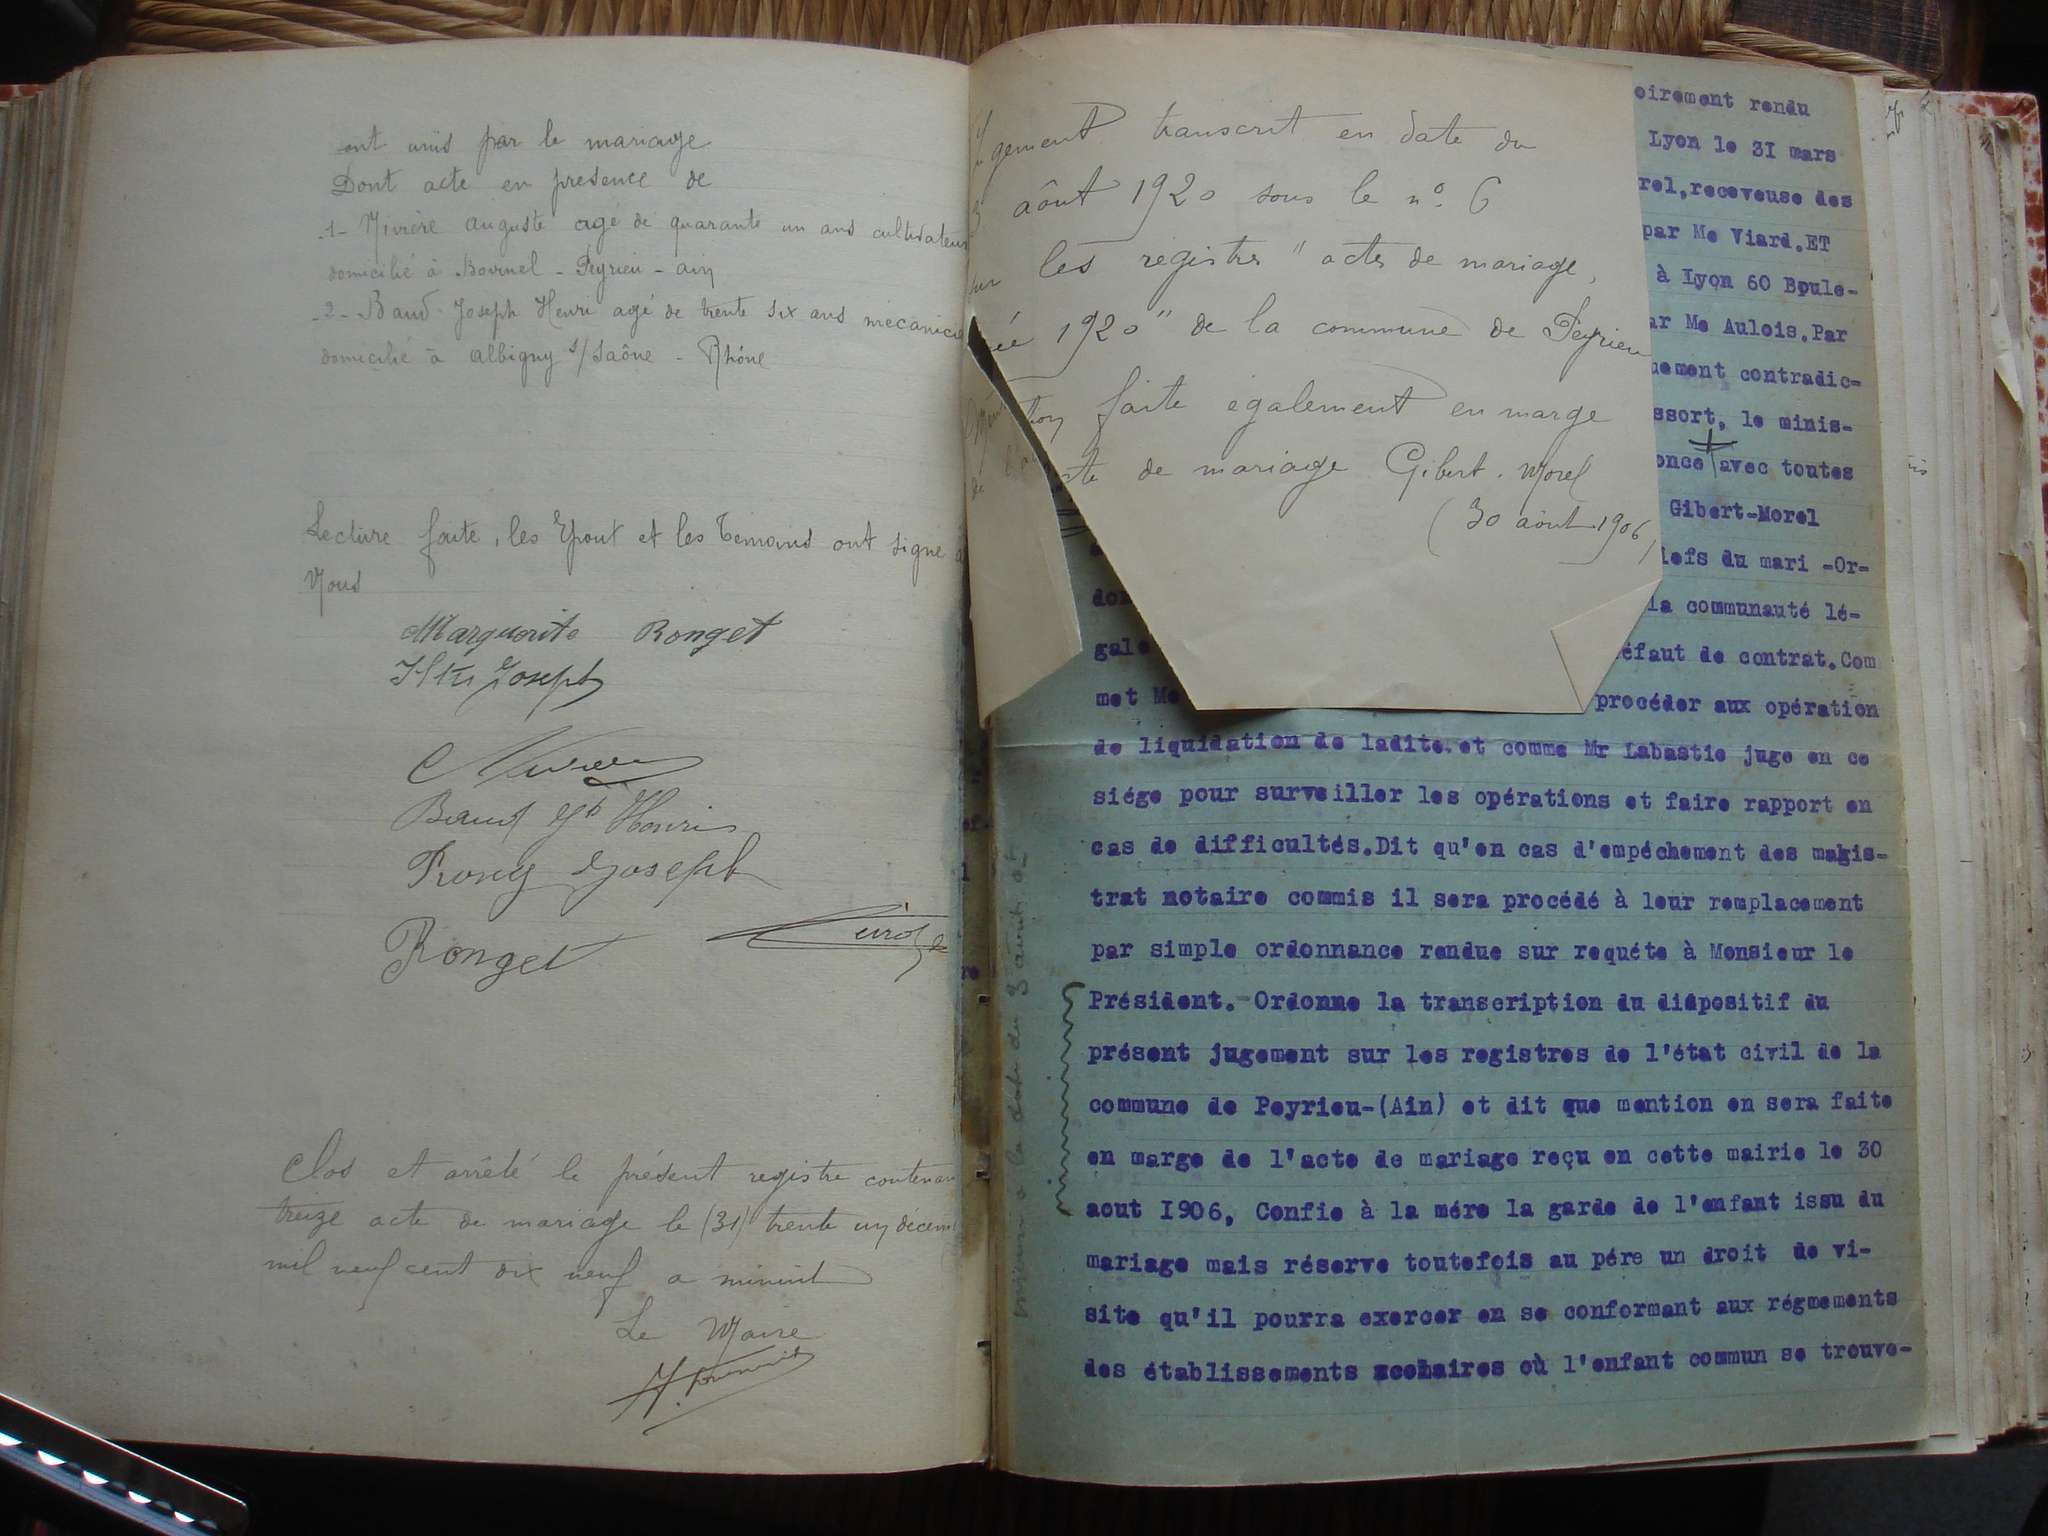 ont unis par le mariage
Dont acte en presence de
-1- Rivière auguste agé de quarante un ans cultivateur
domicilié à Bovinel - Peyrieu - ain
-2- Baud Joseph Henri agé de trente six ans mecanicie
domicilié à albigny s/ Saône - Rhône
Lecture faite, les Epoux et les temoins ont signé a
Nous
Marguerite Ronget
Joseph
Baud Jh Henri
Joseph
Ronget
Clos et arrêté le présent registre contenan
treize acte de mariage le (31) trente un décem
mil neuf cent dix neuf a minuit
Le Maire
gement transcrit en date du
3 aôut 1920 sous le n° 6
sur les registres "actes de mariage,
ée 1920" de la commune de Peyrieu
tion faite également en marge
cte de mariage Gibert-Morel
(30 aôut 1906)
oirement rendu
Lyon le 3I mars
rel,receveuse des
par Me Viard.ET
à Lyon 60 Boule-
ar Me Aulois.Par
uement contradic-
ssort, le minis-
once avec toutes
Gibert-Morel
iefs du mari -Or-
don la communauté lé-
gale éfaut de contrat.Com
met Me procéder aux opération
de liquidation de ladite.et comme Mr Labastie juge en ce
siége pour surveiller les opérations et faire rapport en
cas de difficultés.Dit qu'en cas d'empéchement des magis-
trat notaire commis il sera procédé à leur remplacement
par simple ordonnance rendue sur requéte à Monsieur le
Président.-Ordonne la transcription du dispositif du
présent jugement sur les registres de l'état civil de la
commune de Peyrieu-(Ain) et dit que mention en sera faite
en marge de l'acte de mariage reçu en cette mairie le 30
aout I906, Confie à la mére la garde de l'enfant issu du
mariage mais réserve toutefois au pére un droit de vi-
site qu'il pourra exercer en se conformant aux régmements
des établissements scohaires où l'enfant commun se trouve-